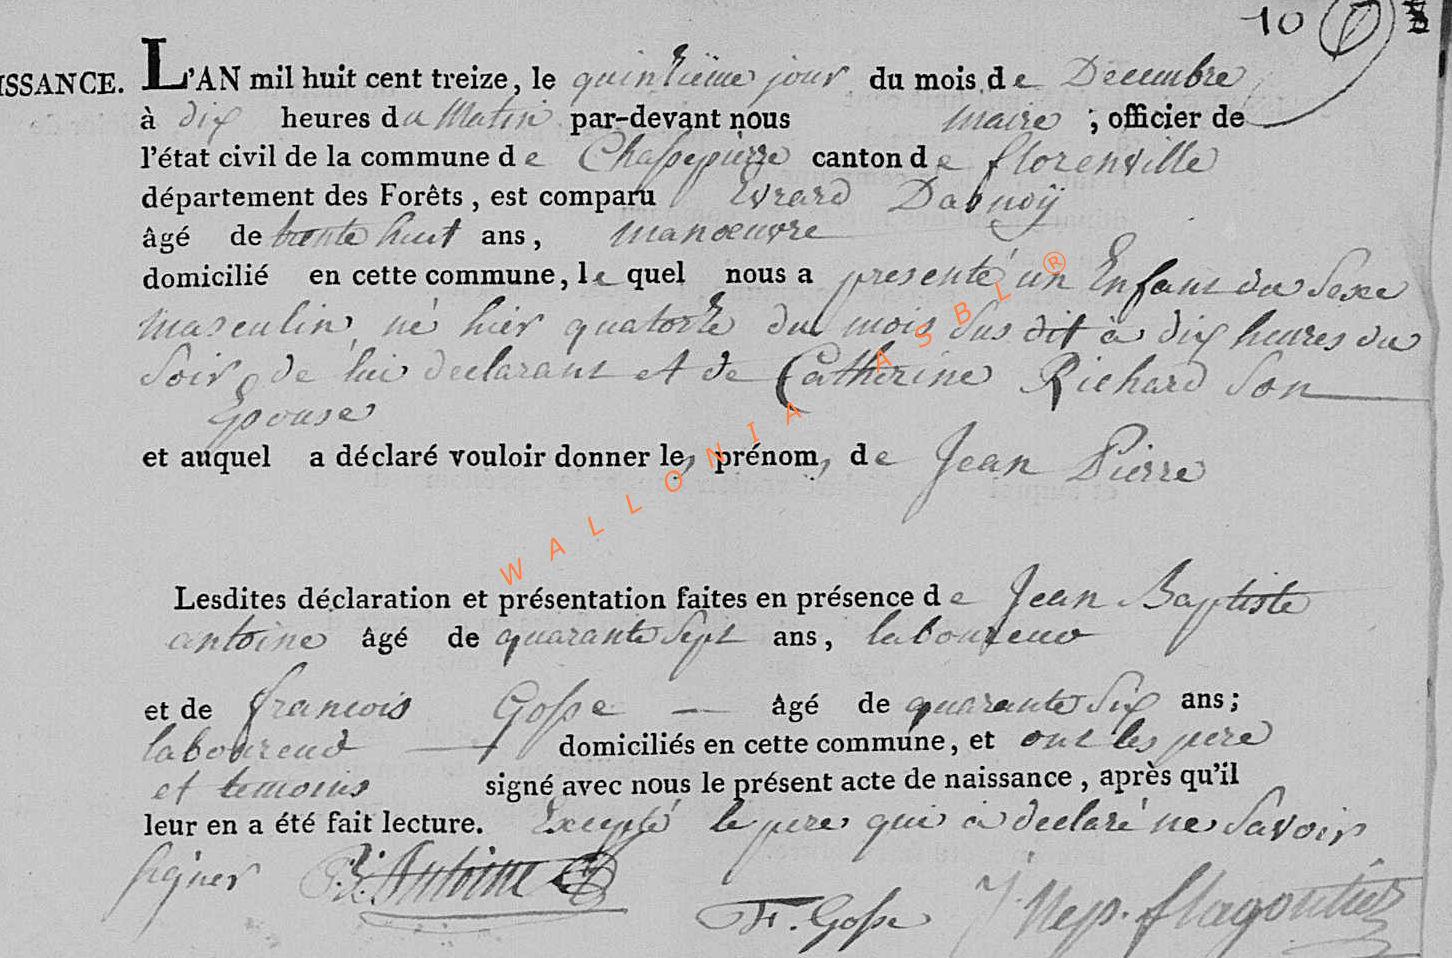 10
ISSANCE.
L'AN mil huit cent treize, le quinzième jour du mois de Decembre
à dix heures du Matin par-devant nous maire ; officier de
l'état civil de la commune de Chassepierre canton de florenville
département des Forêts, est comparu Evrard Dabnoÿ
âgé de trente huit ans, manoeuvre
domicilié en cette commune, le quel nous a presenté un Enfant du Sexe
masculin, né hier quatorze du mois sus dit à dix heures du
Soir, de lui declarant et de Catherine Richard Son
Epouse
et auquel a déclaré vouloir donner le, prénom, de Jean Pierre
Lesdites déclaration et présentation faites en présence de Jean Baptiste
antoine âgé de quarante Sept ans, laboureur
et de francois Gosse — âgé de quarante Six ans;
laboureur — domiciliés en cette commune, et ont les pere
et temoins signé avec nous le présent acte de naissance, après qu'il
leur en a été fait lecture. Excepté le pere qui a declaré ne Savoir
signer Antoine F. Gosse J. Nep.
WALLONIA ASBL ®